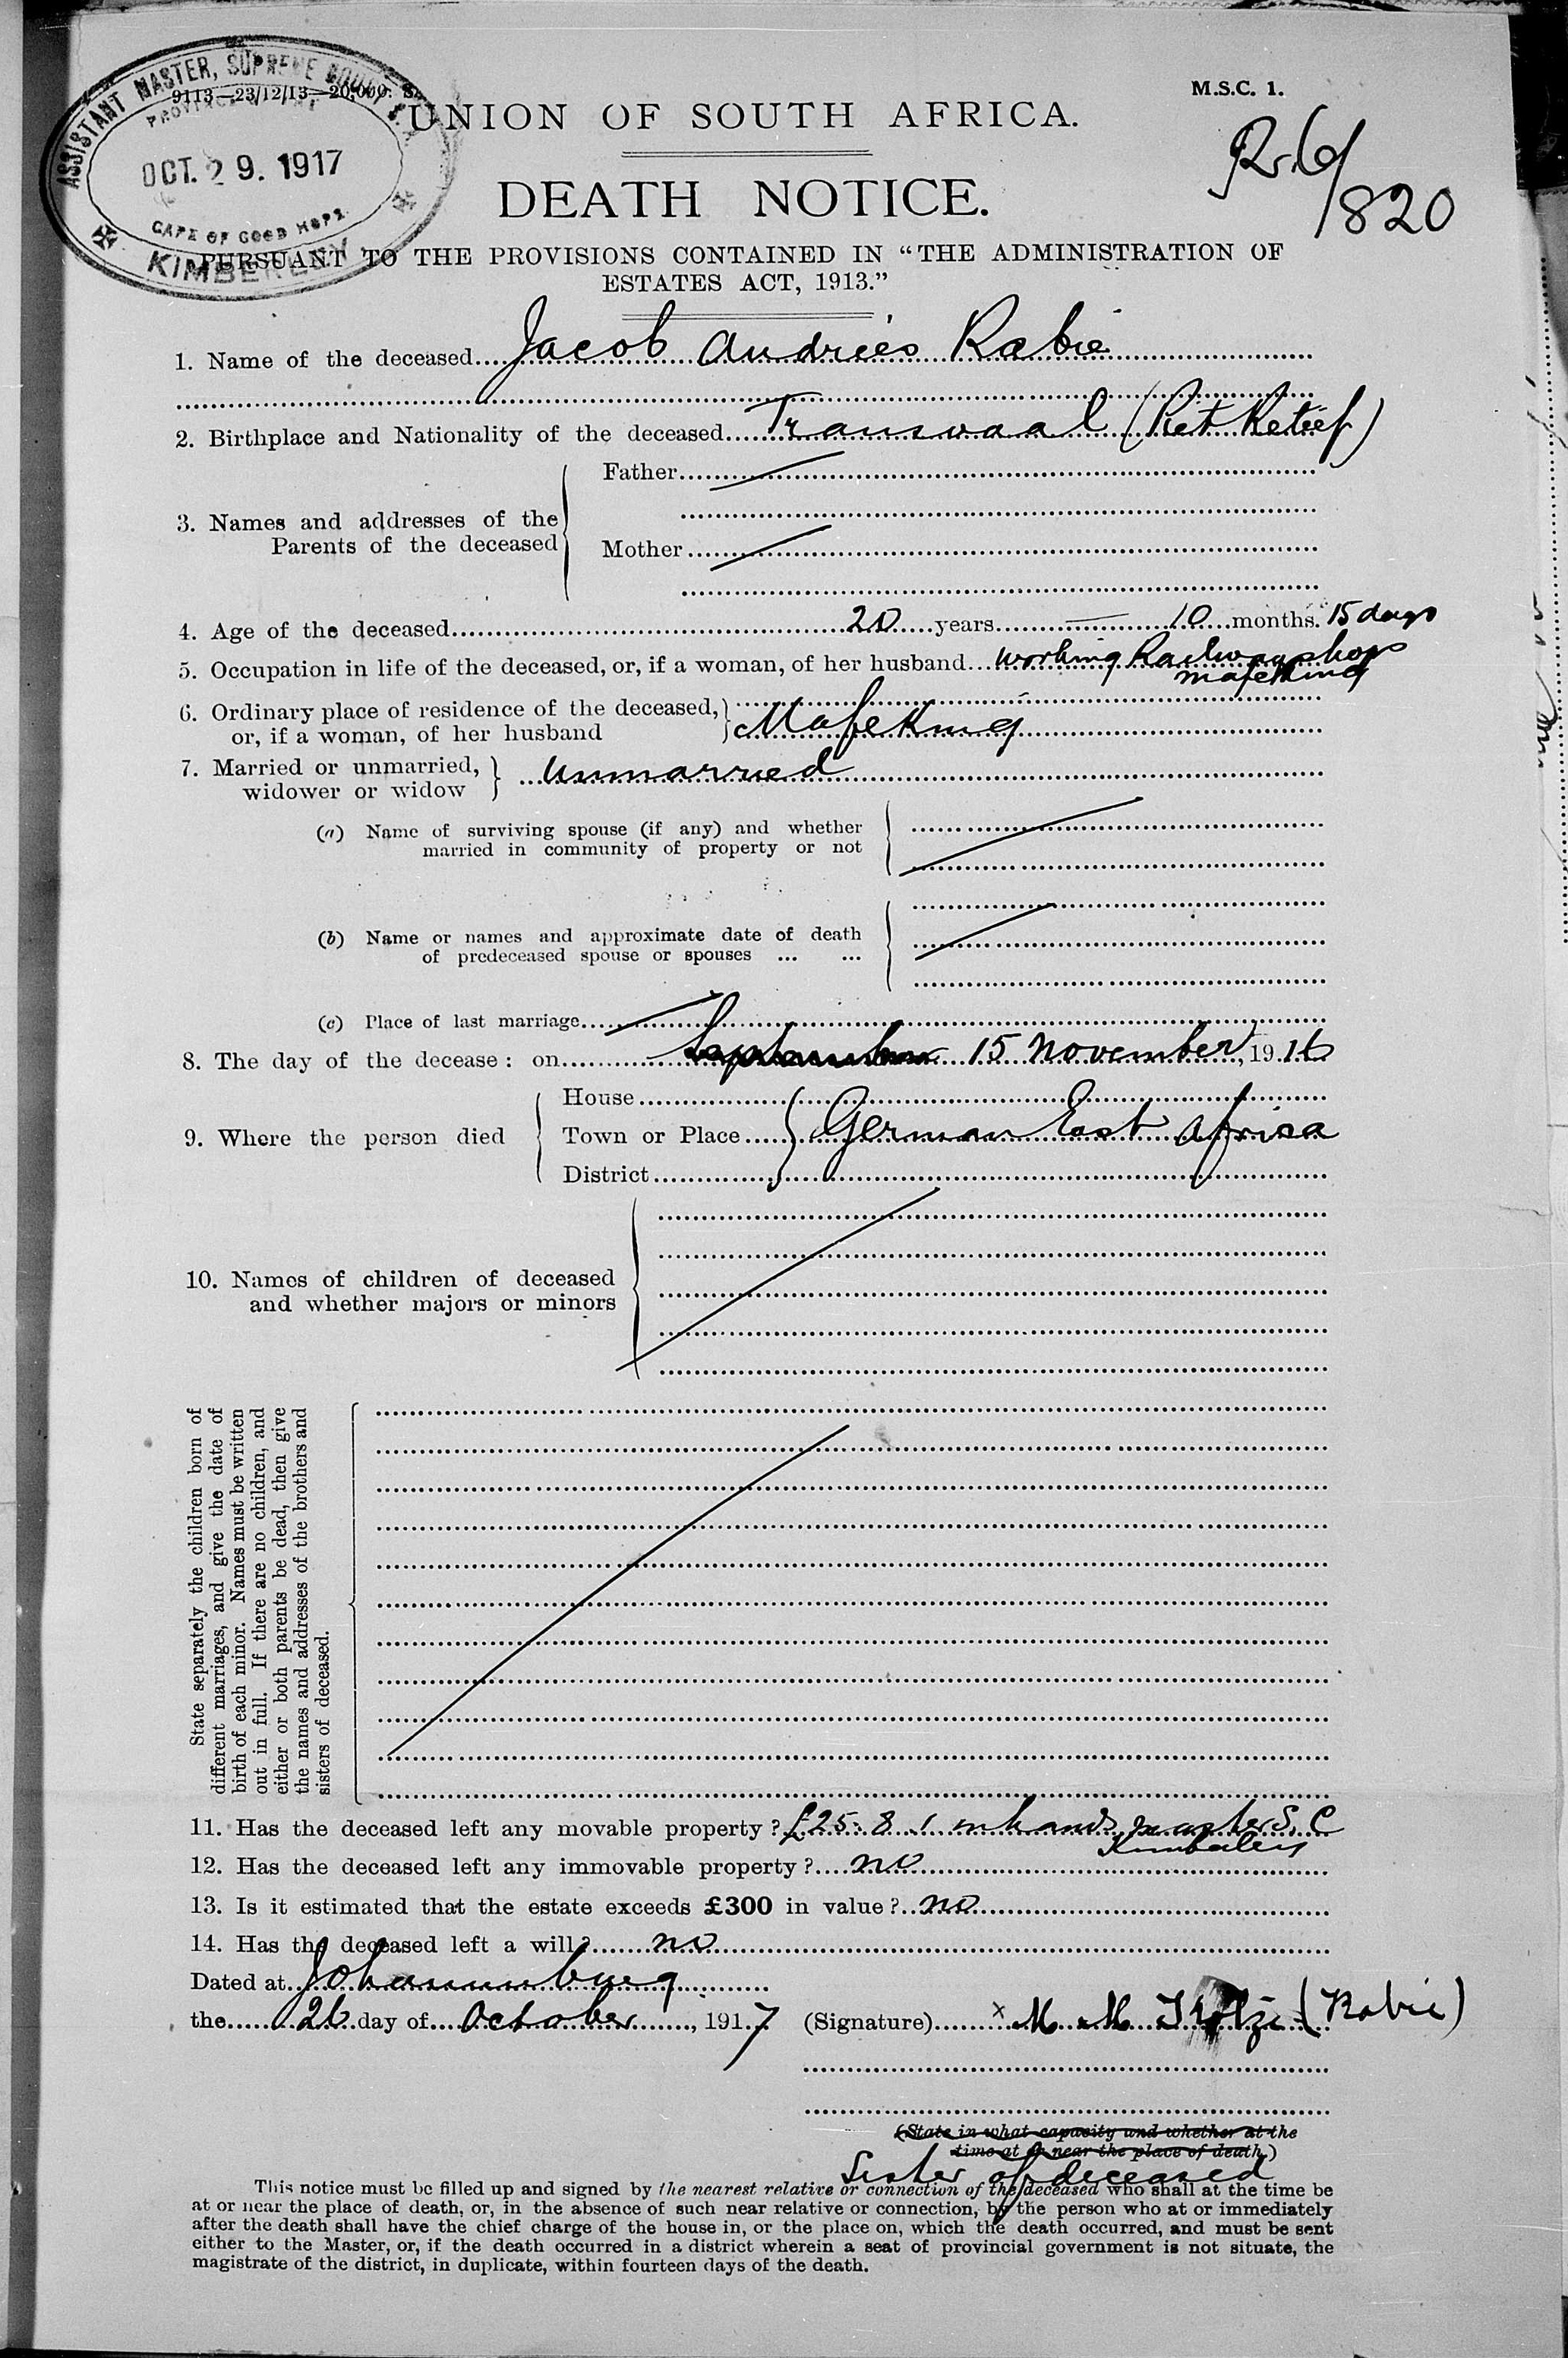 ASSISTANT MASTER, SUPREME COURT
PROVINCE
OCT. 29. 1917
CAPE OF GOOD HOPE
KIMBERLEY
9113—23/12/13—20,000. S.
M.S.C. 1.
UNION OF SOUTH AFRICA.
/820
DEATH NOTICE.
PURSUANT TO THE PROVISIONS CONTAINED IN “THE ADMINISTRATION OF
ESTATES ACT, 1913.”
1. Name of the deceased Jacob Andries Rabie
2. Birthplace and Nationality of the deceased Transvaal (Piet Retief)
3. Names and addresses of the
Parents of the deceased
Father
Mother
4. Age of the deceased 20 years 10 months. 15 days
5. Occupation in life of the deceased, or, if a woman, of her husband working Railway shops
Mafeking
6. Ordinary place of residence of the deceased,
or, if a woman, of her husband Mafeking
7. Married or unmarried,
widower or widow Unmarried
(a) Name of surviving spouse (if any) and whether
married in community of property or not
(b) Name or names and approximate date of death
of predeceased spouse or spouses ... ...
(c) Place of last marriage
8. The day of the decease : on September 15 November, 1916
9. Where the person died
House
Town or Place German East Africa
District
10. Names of children of deceased
and whether majors or minors
State separately the children born of
different marriages, and give the date of
birth of each minor. Names must be written
out in full. If there are no children, and
either or both parents be dead, then give
the names and addresses of the brothers and
sisters of deceased.
11. Has the deceased left any movable property ? £25: 8. 1 in hands master S. C
Kimberley
12. Has the deceased left any immovable property ? no
13. Is it estimated that the estate exceeds £300 in value ? no
14. Has the deceased left a will ? no
Dated at Johannesburg
the 26 day of October, 1917 (Signature) x M M (Rabie)
(State in what capacity and whether at the
time at or near the place of death.)
Sister of deceased
This notice must be filled up and signed by the nearest relative or connection of the deceased who shall at the time be
at or near the place of death, or, in the absence of such near relative or connection, by the person who at or immediately
after the death shall have the chief charge of the house in, or the place on, which the death occurred, and must be sent
either to the Master, or, if the death occurred in a district wherein a seat of provincial government is not situate, the
magistrate of the district, in duplicate, within fourteen days of the death.